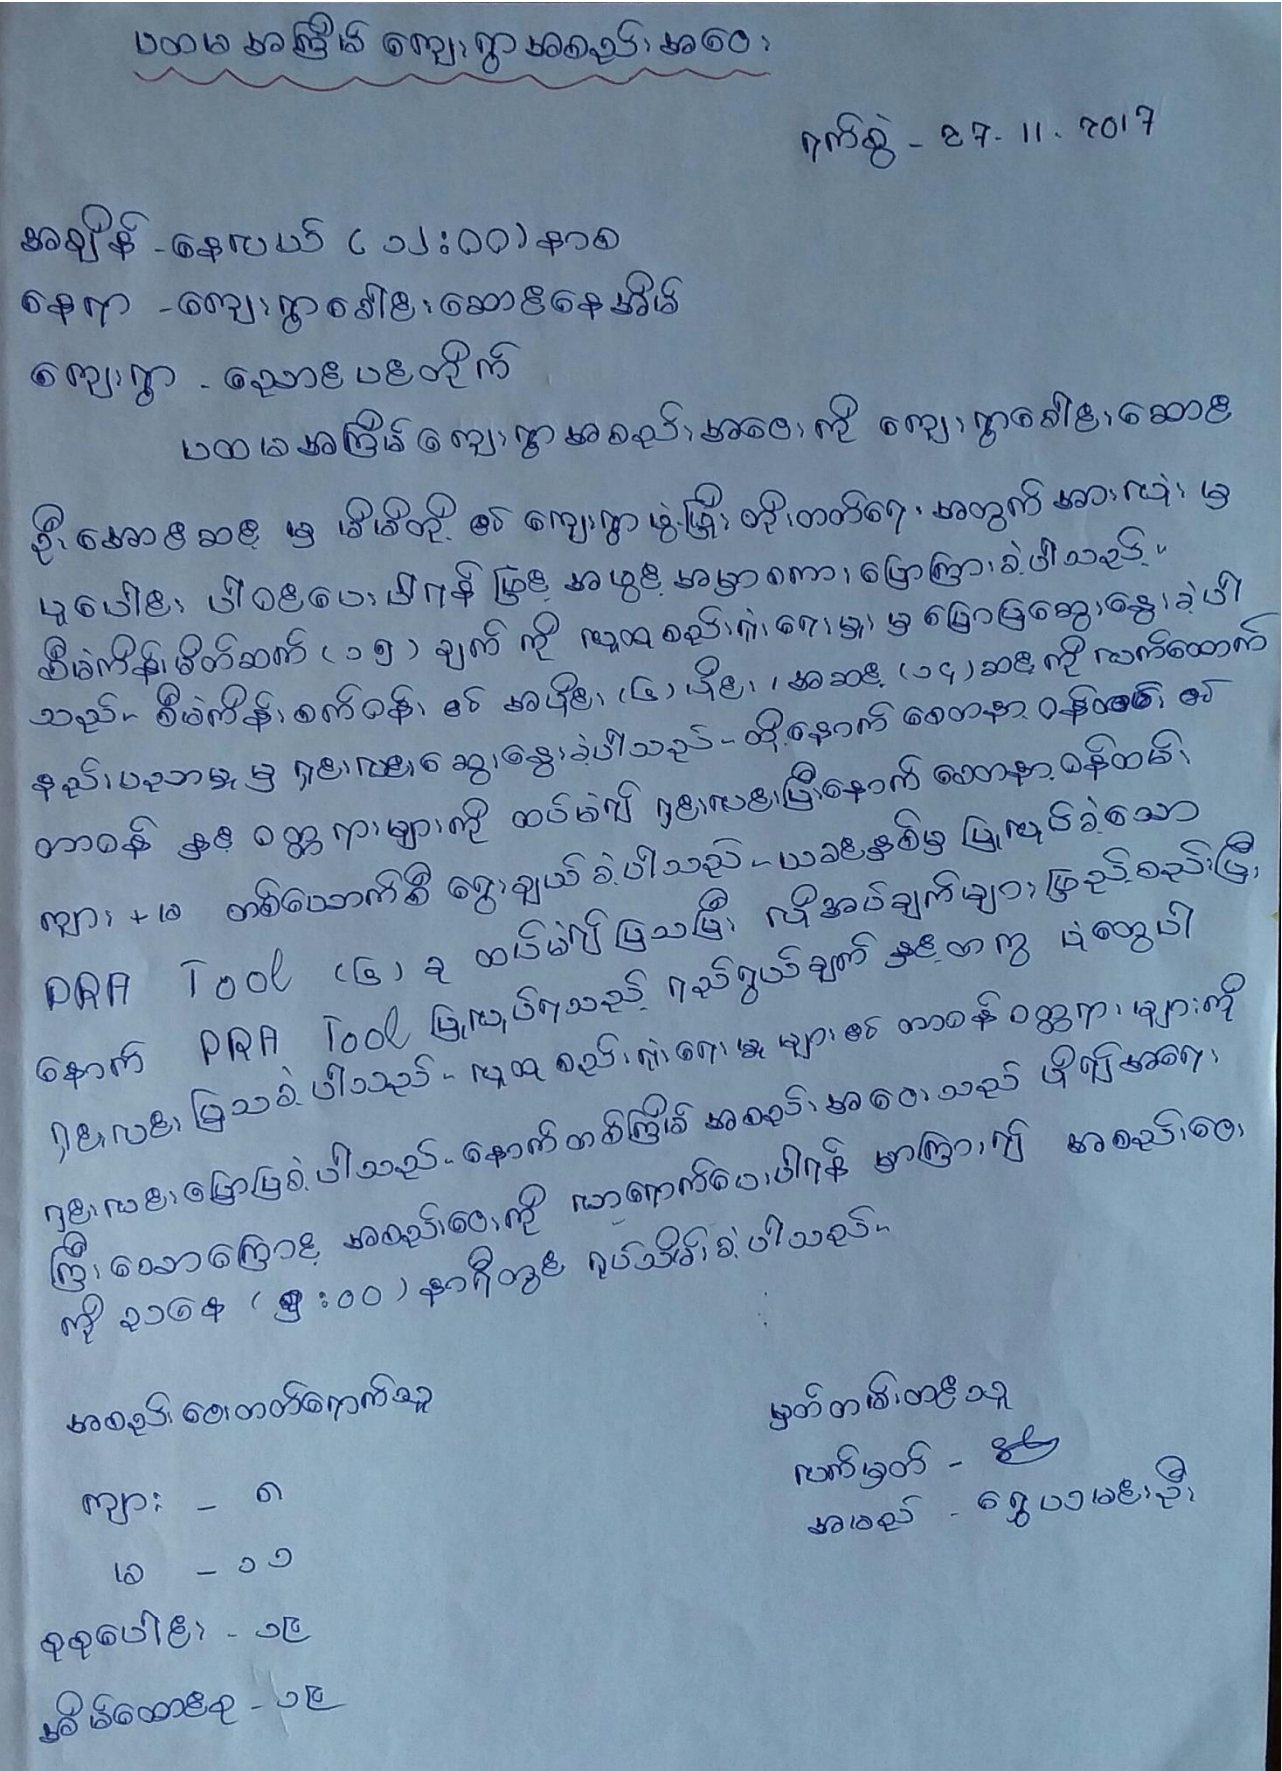 ပထမအကြိမ် ကျေးရွာအစည်းအဝေး
ရက်စွဲ - 27. 11. 2017
အချိန် - နေ့လယ် ( ၁၂:၀၀ ) နာရီ
နေရာ - ကျေးရွာခေါင်းဆောင်နေအိမ်
ကျေးရွာ - ညောင်ပင်တိုက်
ပထမအကြိမ်ကျေးရွာအစည်းအဝေးကို ကျေးရွာခေါင်းဆောင်
ဦးအောင်ဆင့် မှ မိမိတို့၏ ကျေးရွာဖွံ့ဖြိုးတိုးတက်ရေးအတွက် အားလုံးမှ
ပူးပေါင်း ပါဝင်ပေးပါရန် ဖြင့် အဖွင့်အမှာစကား ပြောကြားခဲ့ပါသည်။
စီမံကိန်းမိတ်ဆက် (၁၅) ချက် ကို လူထုစည်းရုံးရေးမှူးမှ ပြောပြဆွေးနွေးခဲ့ပါ
သည်။ စီမံကိန်းစက်ဝန်း ၏ အပိုင်း (၄) ပိုင်း၊ အဆင့် (၁၄) ဆင့် ကို လက်ထောက်
နည်းပညာမှူးမှ ရှင်းလင်းဆွေးနွေးခဲ့ပါသည်။ ထို့နောက် စေတနာ့ဝန်ထမ်း ၏
တာဝန် နှင့် ဝတ္တရားများကို ထပ်မံ၍ ရှင်းလင်းပြီးနောက် စေတနာ့ဝန်ထမ်း
ကျား + မ တစ်ယောက်စီ ရွေးချယ်ခဲ့ပါသည်။ ယခင်နှစ်မှ ပြုလုပ်ခဲ့သော
PRA Tool (၄) ခု ထပ်မံ၍ ပြသပြီး လိုအပ်ချက်များ ဖြည့်စည်းပြီး
နောက် PRA Tool ပြုလုပ်ရသည့် ရည်ရွယ်ချက် နှင့်တကွ ပုံတွေပါ
ရှင်းလင်း ပြသခဲ့ပါသည်။ လူထုစည်းရုံးရေးမှူးများ၏ တာဝန် ဝတ္တရားများကို
ရှင်းလင်းပြောပြခဲ့ပါသည်။ နောက်တစ်ကြိမ် အစည်းအဝေးသည် ပို၍အရေး
ကြီးသောကြောင့် အစည်းဝေးကို လာရောက်ပေးပါရန် မှာကြား၍ အစည်းဝေး
ကို ညနေ ( ၅:၀၀ ) နာရီတွင် ရုပ်သိမ်းခဲ့ပါသည်။
အစည်းဝေးတက်ရောက်သူ
မှတ်တမ်းတင်သူ
ကျား - ၈
လက်မှတ် -
မ - ၁၁
အမည် - ရွှေပသမင်းဦး
စုစုပေါင်း - ၁၉
အိမ်ထောင်စု - ၁၉